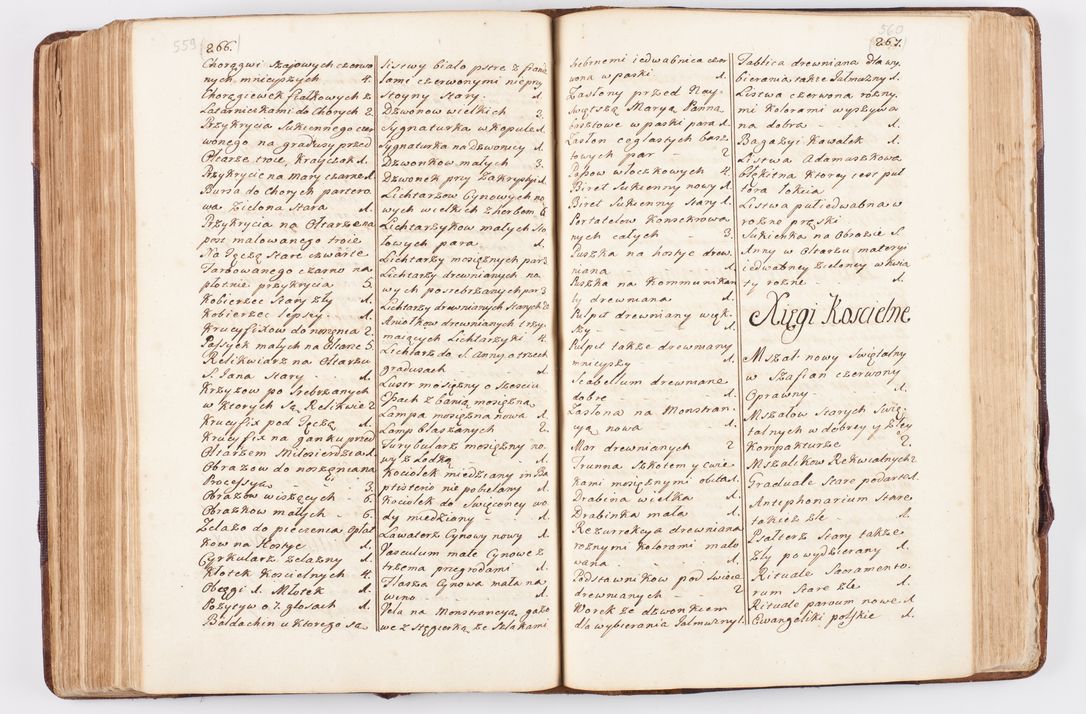 559
266.
Chorągwi Szajowych czerwo
nych mnieyszych 4.
Chorągiewek Fiałkowych z
Latarnieczkami do Chorych 2.
Przykrycia Sukiennego czer
wonego na gradusy przed
Ołtarze troie, Krayczak 1.
Przykrycie na Mary czarne 1.
Bursa do Chorych parcero
wa Zielona Stara 1.
Przykrycia na Ołtarze na
post malowanego troie
Na Tęczę Stare czwarte
Farbowanego czarno na
płotnie przykrycia 5.
Kobierzec Stary Zły 1.
Kobierzec lepszy 1.
Krucyfixow do noszenia 2.
Passyek małych na Ołtarze 5.
Relikwiarz na Ołtarzu
S. Jana Stary 1.
Krzyzow po srebrzanych
w Ktorych Są Relikwie 2
Krucyfix pod Tęczą 1.
Krucyfix na ganku przed
Ołtarzem Miłosierdzia 1.
Obrazow do noszenia na
Processyą 3.
Obrazow wiszących 6.
Obrazkow małych 6.
Zelazo do pieczenia opłat
kow na Hostye 1.
Cyrkularz Zelazny 1.
Kłotek Koscielnych 4.
Obcęgi 1. Młotek 1.
Pozytyw o 7. głosach 1.
Baldachin u Ktorego są
Listwy biało pstre z franz
lami czerwonymi nieprzy
stoyny Stary. 1.
Dzwonow wielkich 3.
Sygnaturka w Kopule 1.
Sygnaturka na Dzwonicy 1.
Dzwonkow małych 3.
Dzwonek przy Zakrystyi 1.
Lichtarzow Cynowych no
wych wielkich z herbem 6
Lichtarzykow małych Sto
łowych para 1.
Lichtarzy mosięznych par 3
Lichtarzy drewnianych no
wych posrebrzanych par 3
Lichtarzy drewnianych starych 20
Aniołkow drewnianych trzy
maiących Lichtarzyki 4.
Lichtarz do S. Anny o trzech
gradusach 1.
Lustr mosięzny o Szesciu
Osach z banią mosięzną
Lampa mosięzna nowa 1.
Lamp Blaszanych 2.
Turybularz mosięzny no
wy z Łodką 1.
Kociołek miedziany in Ba
ptisterio nie pobielany 1.
Kociołek do Swięconey wo
dy miedziony 1.
Lawaterz Cynowy nowy 1.
Vasculum małe Cynowe z
trzema przegrodami 1.
Flasza Cynowa mała na
wino 1.
Pola na Monstrancyą gazo
we z Stęgierką, ze Szlakami
560
267.
srebrnemi iedwabnica czer
wona w paski 1.
Zasłony przed Nay
Swiętszą Maryą Panną
barsztowe w paski para 1.
Zasłon ceglastych barsz
towych par 2
Popow włoczkowych 4.
Biret Sukienny nowy 1.
Biret Sukienny Stary 1.
Portatelow Konsekrowa
nych całych 3.
Puszka na hostye drew
niana 1.
Puszka na Kommunikan
ty drewniana 1.
Pulpit drewniany więk
szy 1.
Pulpit takze drewniany
mnieyszy 1.
Scabellum drewniane
dobre 1.
Zasłona na Monstran
cyą nowa 1.
Mar drewnianych 2
Trunna Szkotem y cwie
kami mosięznymi obita 1.
Drabina wielka 1.
Drabinka mała 1.
Rezurrekcya drewniana
roznymi Kolorami malo
wana 1.
Podstawnikow pod swiece
drewnianych 2.
Worek ze dzwonkiem
dla wybierania Jałmuzny 1.
Tablica drewniana dla wy
bierania takze Jałmuzny 1.
Listwa czerwona rozny
mi Kolorami wyszywa
na dobra 1.
Bagazyi Kawałek 1.
Listwa Adamaszkowa
błękitna Ktorey iest puł
tora łokcia
Listwa pułiedwabna w
rozne pręski
Sukienka na Obrazie S.
Anny w Ołtarzu materyi
iedwabney Zieloney w kwia
ty rozne 1.
Xięgi Koscielne
Mszał nowy Swiętalny
w Szafian czerwony
Oprawny 1.
Mszałow Starych Swię
talnych w dobrey y złey
Kompakturze 2.
Mszalikow Rekwialnych 2
Graduale Stare podarte 1.
Antiphonarium Stare
takiez złe 1.
Psalterz Stary takze
Zły powydzierany 1.
Rituale Sacramento.
rum Stare złe 1.
Rituale parvum nowe 1.
Ewangeliki polskie 1.